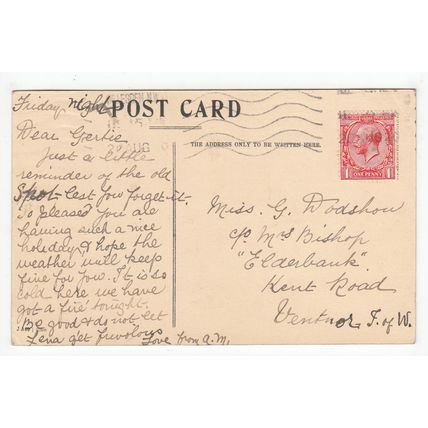 Friday night
POST CARD
THE ADDRESS ONLY TO BE WRITTEN HERE.
Dear Gertie
Just a little
reminder of the old
Spot lest you forget it.
So pleased you are
having such a nice
holiday & hope the
weather will keep
fine for you. It is so
cold here we have
got a fire tonight.
Be good & do not let
Lena get frivolous
Love from A.M.
AUG
ONE PENNY
Miss. G. Dodshon
c/o Mrs Bishop
"Elderbank"
Kent Road
Ventnor I. of W.